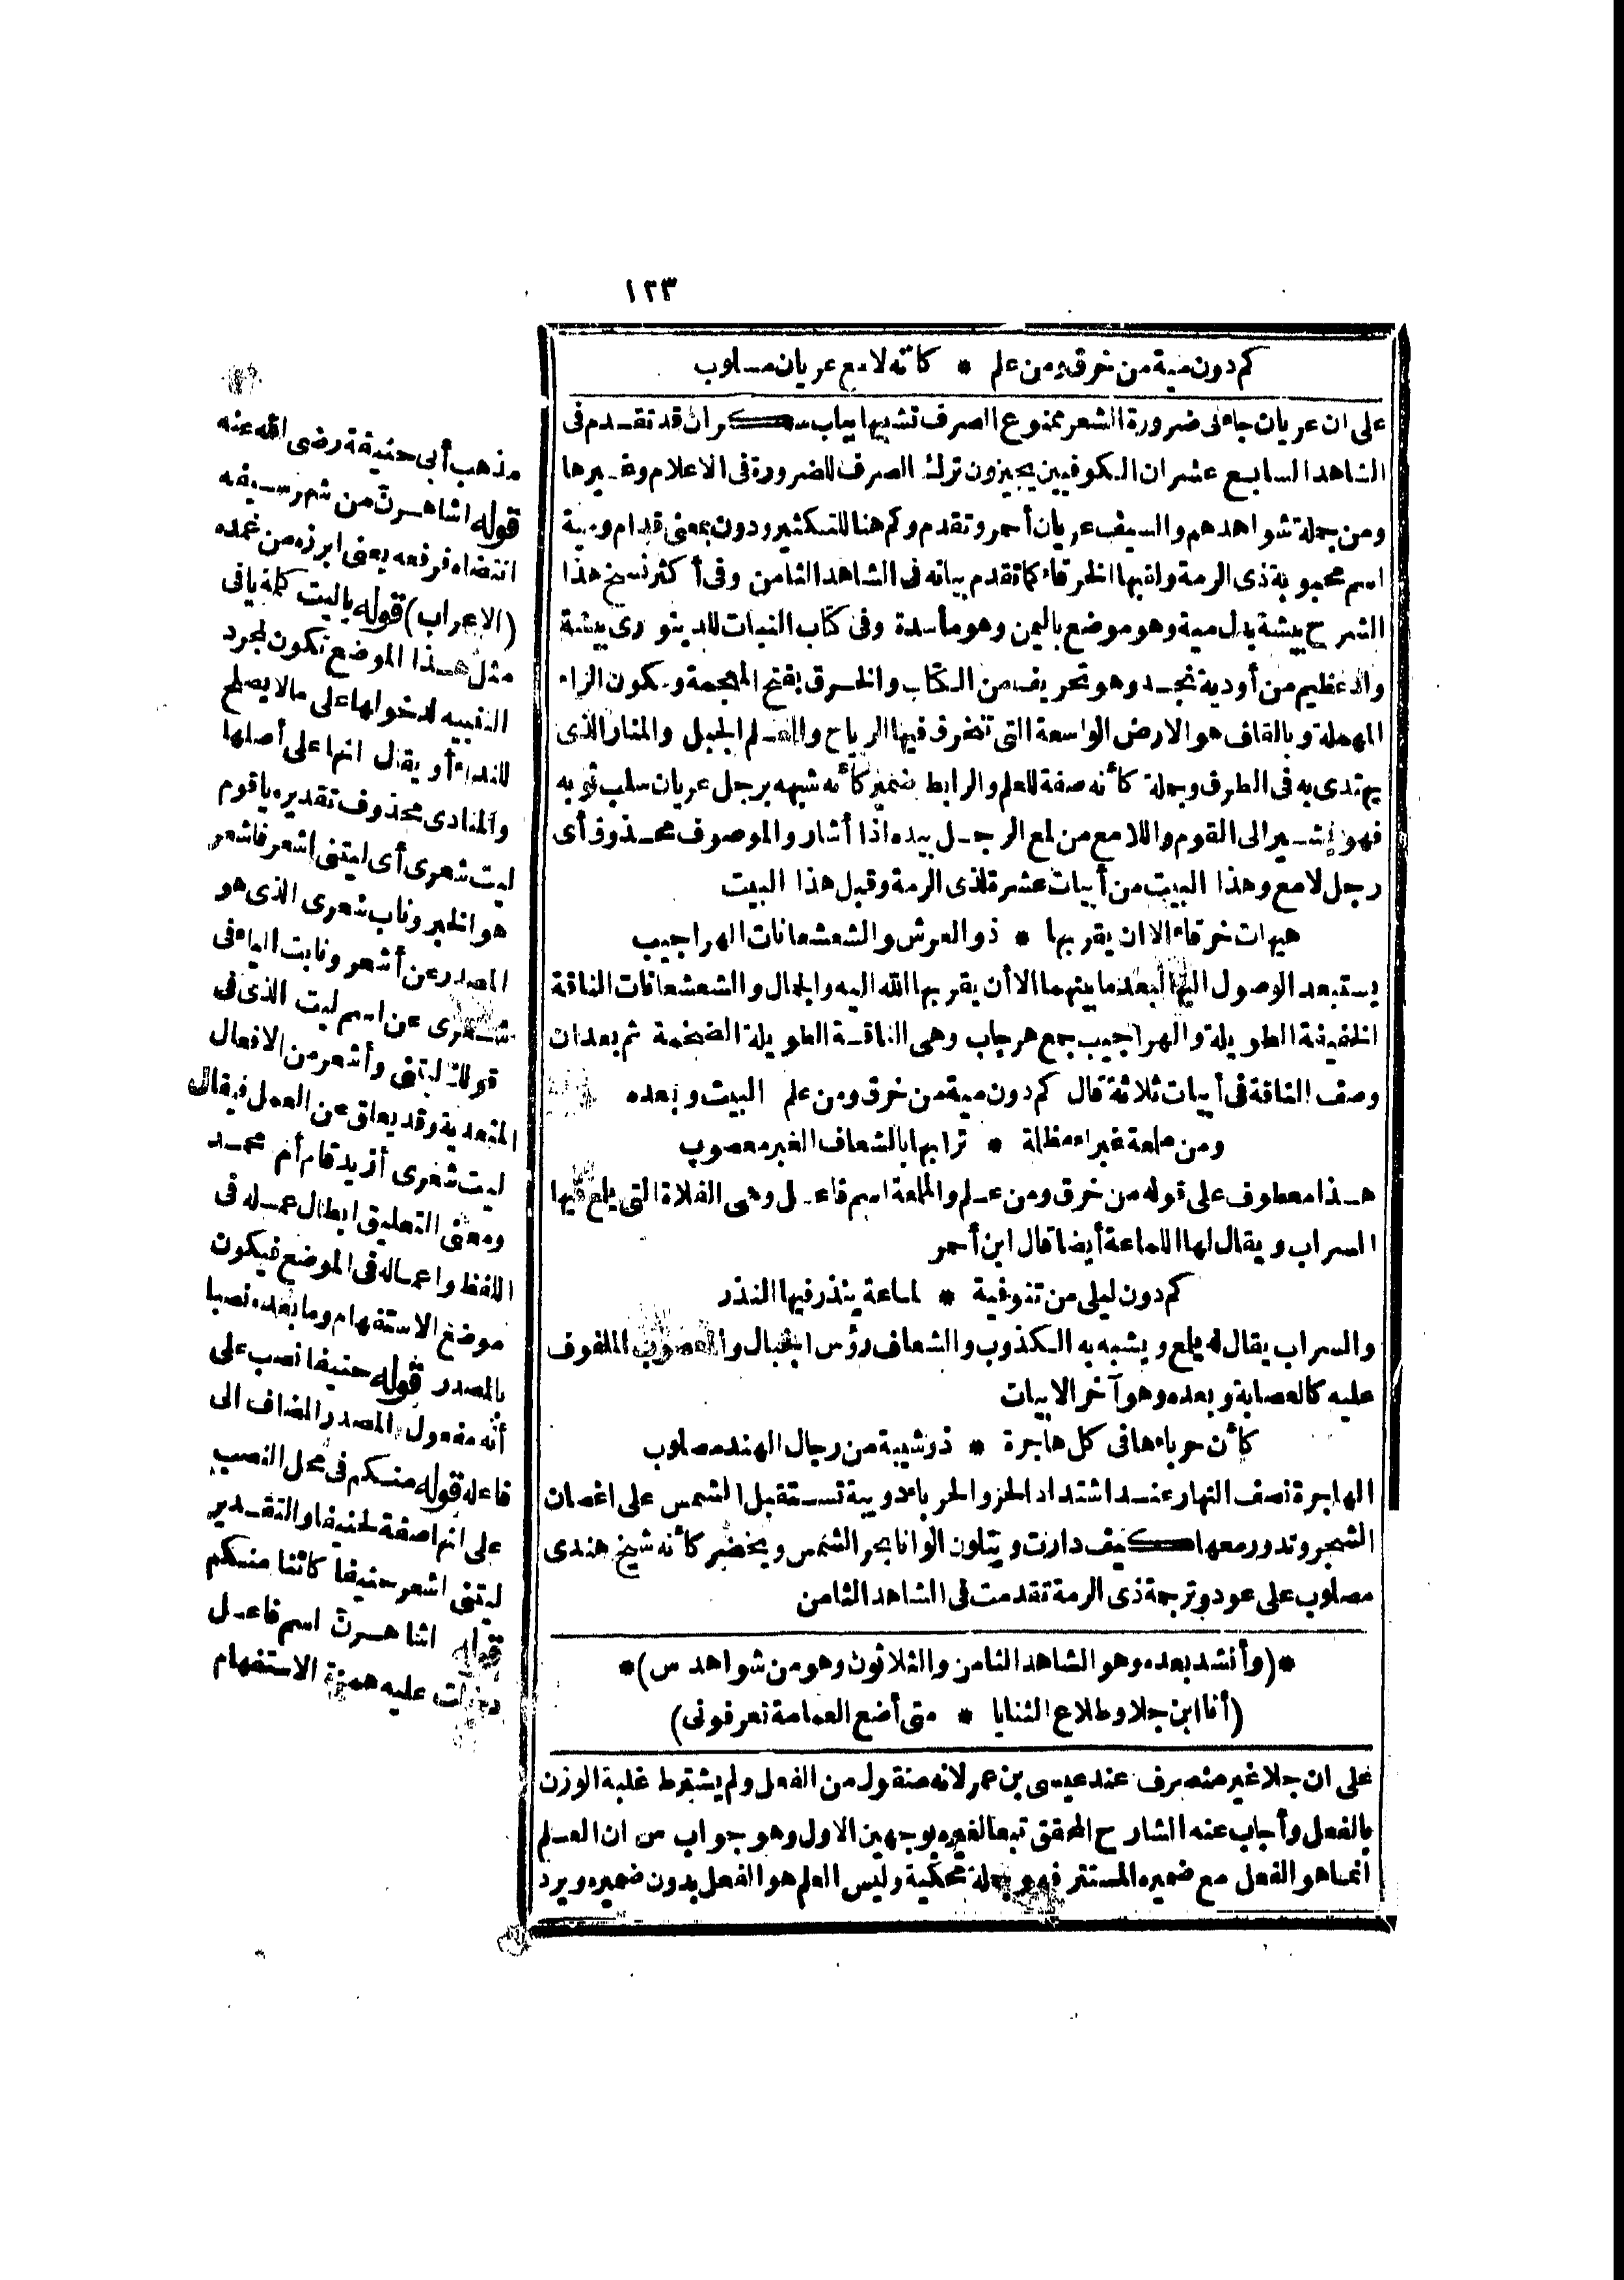 ١٢٣
كم دون مية من خرق ومن علم * كأنه لامع عريان مسلوب
على ان عريان جاء فى ضرورة الشعر ممنوع الصرف تشبيها بباب سكران قد تقدم فى
الشاهد السابع عشر ان الكوفيين يجيزون ترك الصرف للضرورة فى الاعلام وغيرها
ومن جملة شواهدهم والسيف عريان أحمر وتقدم وكم هنا للتكثير ودون بمعنى قدام ومية
اسم محبوبة ذى الرمة ولقبها الخرقاء كما تقدم بيانه فى الشاهد الثامن وفى أكثر نسخ هذا
الشرح بيشة بدل مية وهو موضع باليمن وهو مأسدة وفى كتاب النبات للدينورى بيشة
واد عظيم من أودية نجد وهو تحريف من الكتاب والخرق بفتح المعجمة وسكون الراء
المهملة وبالقاف هو الارض الواسعة التى تنخرق فيها الرياح والعلم الجبل والمنار الذى
يهتدى به فى الطرق وجملة كأنه صفة للعلم والرابط ضمير كأنه شبهه برجل عريان سلب ثوبه
فهو يشير الى القوم واللامع من لمع الرجل بيده اذا أشار والموصوف محذوف أى
رجل لامع وهذا البيت من أبيات عشرة لذى الرمة وقبل هذا البيت
هيهات خرقاء الا ان يقربها * ذو العرش والشعشعانات الهراجيب
يستبعد الوصول اليها لبعد ما بينهما الا أن يقربها الله اليه والجمال والشعشعانات الناقة
الخفيفة الطويلة والهراجيب جمع هرجاب وهى الناقة الطويلة الضخمة ثم بعد ان
وصف الناقة فى أبيات ثلاثة قال كم دون مية من خرق ومن علم البيت وبعده
ومن ملمعة غبراء مظلة * ترابها بالشعاف الغبر معصوب
هذا معطوف على قوله من خرق ومن علم والملمعة اسم فاعل وهى الفلاة التى يلمع فيها
السراب ويقال لها اللماعة أيضا قال ابن أحمر
كم دون ليلى من تنوفية * لماعة ينذر فيها النذر
والسراب يقال له يلمع ويشبه به الكذوب والشعاف رؤس الجبال والمعصوب الملفوف
عليه كالعصابة وبعده وهو آخر الابيات
كأن حرباءها فى كل هاجرة * ذو شيبة من رجال الهند مصلوب
الهاجرة نصف النهار عند اشتداد الحر والحرباء دويبة تستقبل الشمس على اغصان
الشجر وتدور معها كيف دارت ويتلون الوانا بحر الشمس ويخضر كأنه شيخ هندى
مصلوب على عود وترجمة ذى الرمة تقدمت فى الشاهد الثامن
*(وأنشد بعده وهو الشاهد الثامن والثلاثون وهو من شواهد س)*
(أنا ابن جلا وطلاع الثنايا * متى أضع العمامة تعرفونى)
على ان جلا غير منصرف عند عيسى بن عمر لانه منقول من الفعل ولم يشترط غلبة الوزن
بالفعل وأجاب عنه الشارح المحقق تبعا لغيره بوجهين الاول وهو جواب س ان العلم
انما هو الفعل مع ضميره المستتر فهو جملة محكية وليس العلم هو الفعل بدون ضميره ويرد
مذهب أبى حنيفة رضى الله عنه
قوله اشاهرن من شهر سيفه
انتضاه فرفعه يعنى ابرزه من غمده
(الاعراب) قوله ياليت كلمة يا فى
مثل هذا الموضع تكون لمجرد
التنبيه لدخولها على ما لا يصلح
للنداء أو يقال انها على أصلها
والمنادى محذوف تقديره يا قوم
ليت شعرى أى ليتنى اشعر فاشعر
هو الخبر وناب شعرى الذى هو
المصدر عن أشعر ونابت الياء فى
شعرى عن اسم ليت الذى فى
قولك ليتنى وأشعر من الافعال
المتعدية وقد يعلق عن العمل فيقال
ليت شعرى أزيد قام أم محمد
ومعنى التعليق ابطال عمله فى
اللفظ واعماله فى الموضع فيكون
موضع الاستفهام وما بعده نصبا
بالمصدر قوله حنيفا نصب على
أنه مفعول المصدر المضاف الى
فاعله قوله منكم فى محل النصب
على انها صفة لحنيفا والتقدير
ليتنى اشعر حنيفا كائنا منكم
قوله اشاهرن اسم فاعل
دخلت عليه همزة الاستفهام